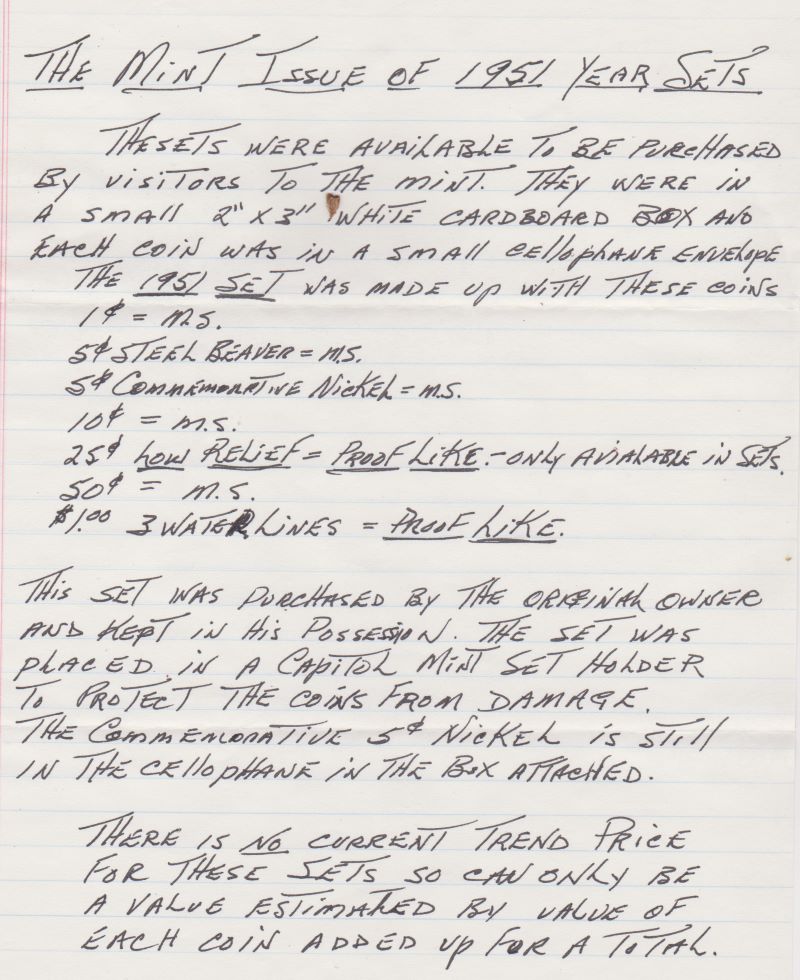 THE MINT ISSUE OF 1951 YEAR SETS
THESETS WERE AVAILABLE TO BE PURCHASED
BY VISITORS TO THE MINT. THEY WERE IN
A SMALL 2" X 3" WHITE CARDBOARD BOX AND
EACH COIN WAS IN A SMALL CELLOPHANE ENVELOPE
THE 1951 SET WAS MADE UP WITH THESE COINS
1¢ = M.S.
5¢ STEEL BEAVER = M.S.
5¢ COMMEMORATIVE NICKEL = M.S.
10¢ = M.S.
25¢ LOW RELIEF = PROOF LIKE. - ONLY AVIALABLE IN SETS.
50¢ = M.S.
$1.00 3 WATER LINES = PROOF LIKE.
THIS SET WAS PURCHASED BY THE ORIGINAL OWNER
AND KEPT IN HIS POSSESSION. THE SET WAS
PLACED IN A CAPITOL MINT SET HOLDER
TO PROTECT THE COINS FROM DAMAGE.
THE COMMEMORATIVE 5¢ NICKEL IS STILL
IN THE CELLOPHANE IN THE BOX ATTACHED.
THERE IS NO CURRENT TREND PRICE
FOR THESE SETS SO CAN ONLY BE
A VALUE ESTIMATED BY VALUE OF
EACH COIN ADDED UP FOR A TOTAL.